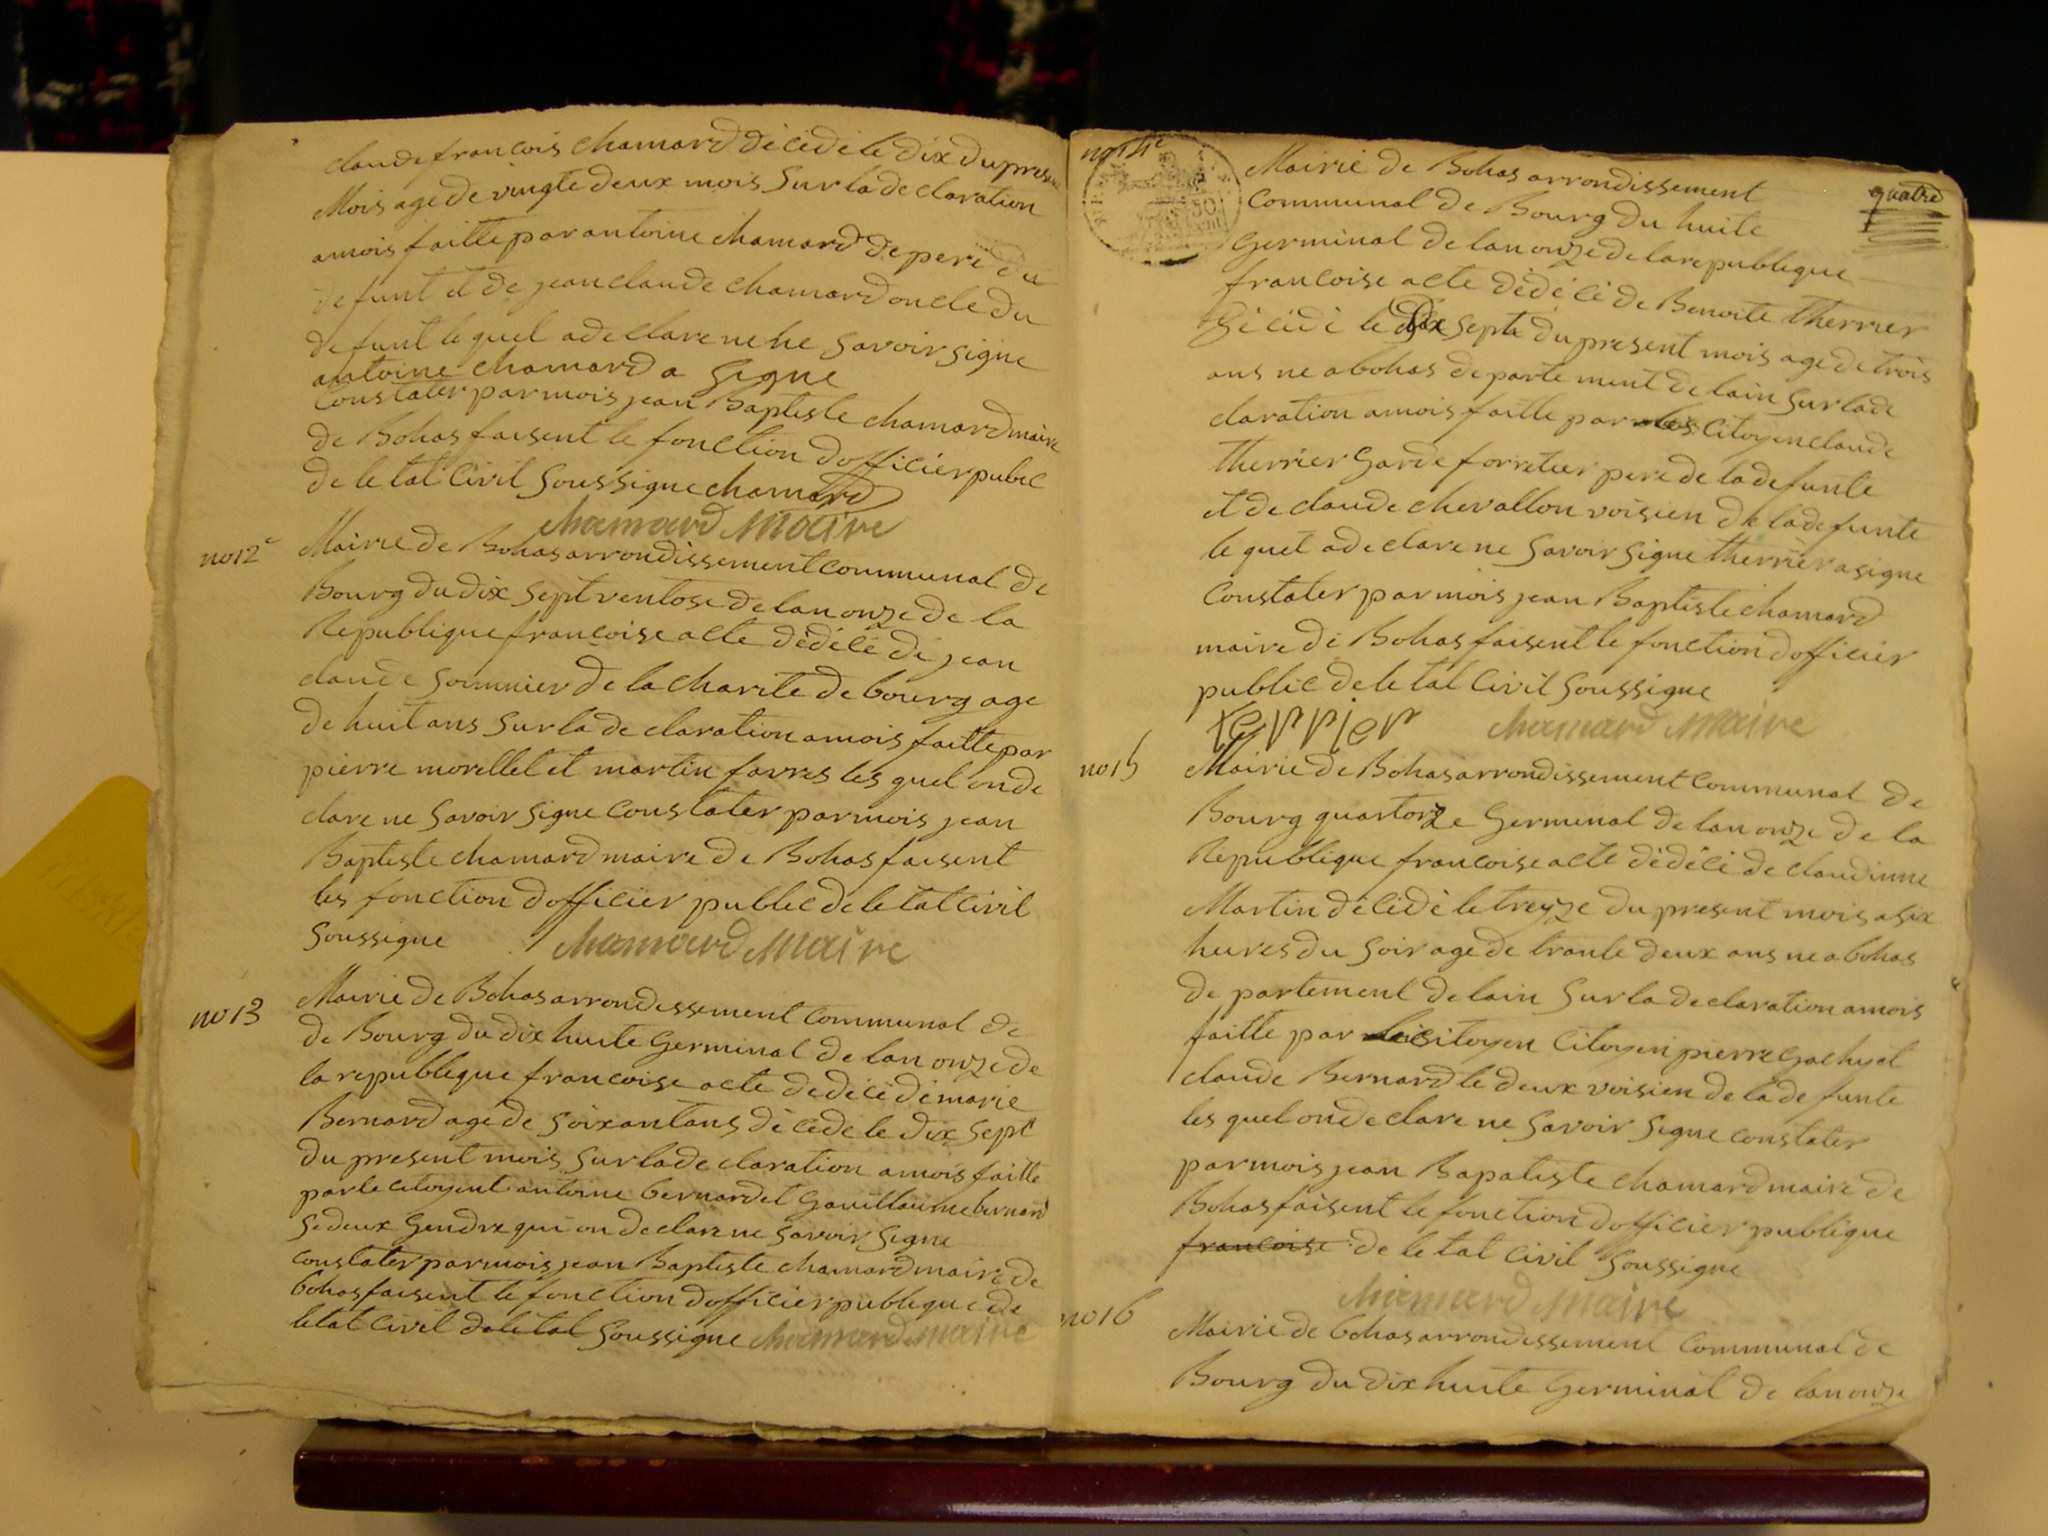 claude francois chamard décédé le dix du presen
Mois age de vingte deux mois sur la de claration
amois faitte par antoine chamard de pere du
defunt et de jean claude chamard oncle du
defunt le quel a declare ne ne savoir signe
antoine chamard a signe
Constater par mois jean Baptiste chamard maire
de Bohas faisent le fonction dofficier publc
de letat Civil soussigne chamard
chamard maire
no 12e
Mairie de Bohas arrondissement communal de
Bourg du dix sept ventose de lan onze de la
Republique francoise acte dédécé de jean
claude sommier de la charite de bourg age
de huit ans sur la de claration amois faitte par
pierre morellet et martin favres les quel on de
clare ne savoir signe constater par mois jean
Baptiste chamard maire de Bohas faisent
les fonction dofficier public de letat civil
soussigne
chamard maire
no 13
Mairie de Bohas arrondissement communal de
de Bourg du dix huite Germinal de lan onze de
la republique francoise acte dedécé de marie
Bernard age de soixant ans décéde le dix sept
du present mois sur la de claration amois faitte
par le citoyent antoine bernard et Gouillaume bernard
se deux Gendre qui on declare ne savoir signe
constater par mois jean Baptiste chamard maire de
bohas faisent le fonction dofficier publique de
letat civil de letat soussigne chamard maire
no 14e
quatre
Mairie de Bohas arrondissement
Communal de Bourg du huite
Germinal de lan onze de la republique
francoise acte dédécé de Benoite therrier
décédé le dix septe du present mois age de trois
ans ne a bohas departement de lain sur la de
claration amois faitte par les Citoyen claude
therrier Garde forretier pere de la defunte
et de claude chevallon voisien de la defunte
le quel a declare ne savoir signe therrier a signe
Constater par mois jean Baptiste chamard
maire de Bohas faisent le fonction dofficier
public de letat Civil soussigne
terrier chamard maire
no 15
Mairie de Bohas arrondissement communal de
Bourg quartorze Germinal de lan onze de la
Republique francoise acte dédécé de claudinne
Martin décédé le treyze du present mois a six
heures du soir age de trante deux ans ne a bohas
de partement de lain sur la declaration amois
faitte par les citoyen Citoyen pierre Gachy et
claude Bernard le deux voisien de la defunte
les quel on declare ne savoir signe constater
par mois jean Bapatiste chamard maire de
Bohas faisent le fonction dofficier publique
francoise de letat civil soussigne
chamard maire
no 16
Mairie de bohas arrondissement communal de
Bourg du dix huite Germinal de lan onze